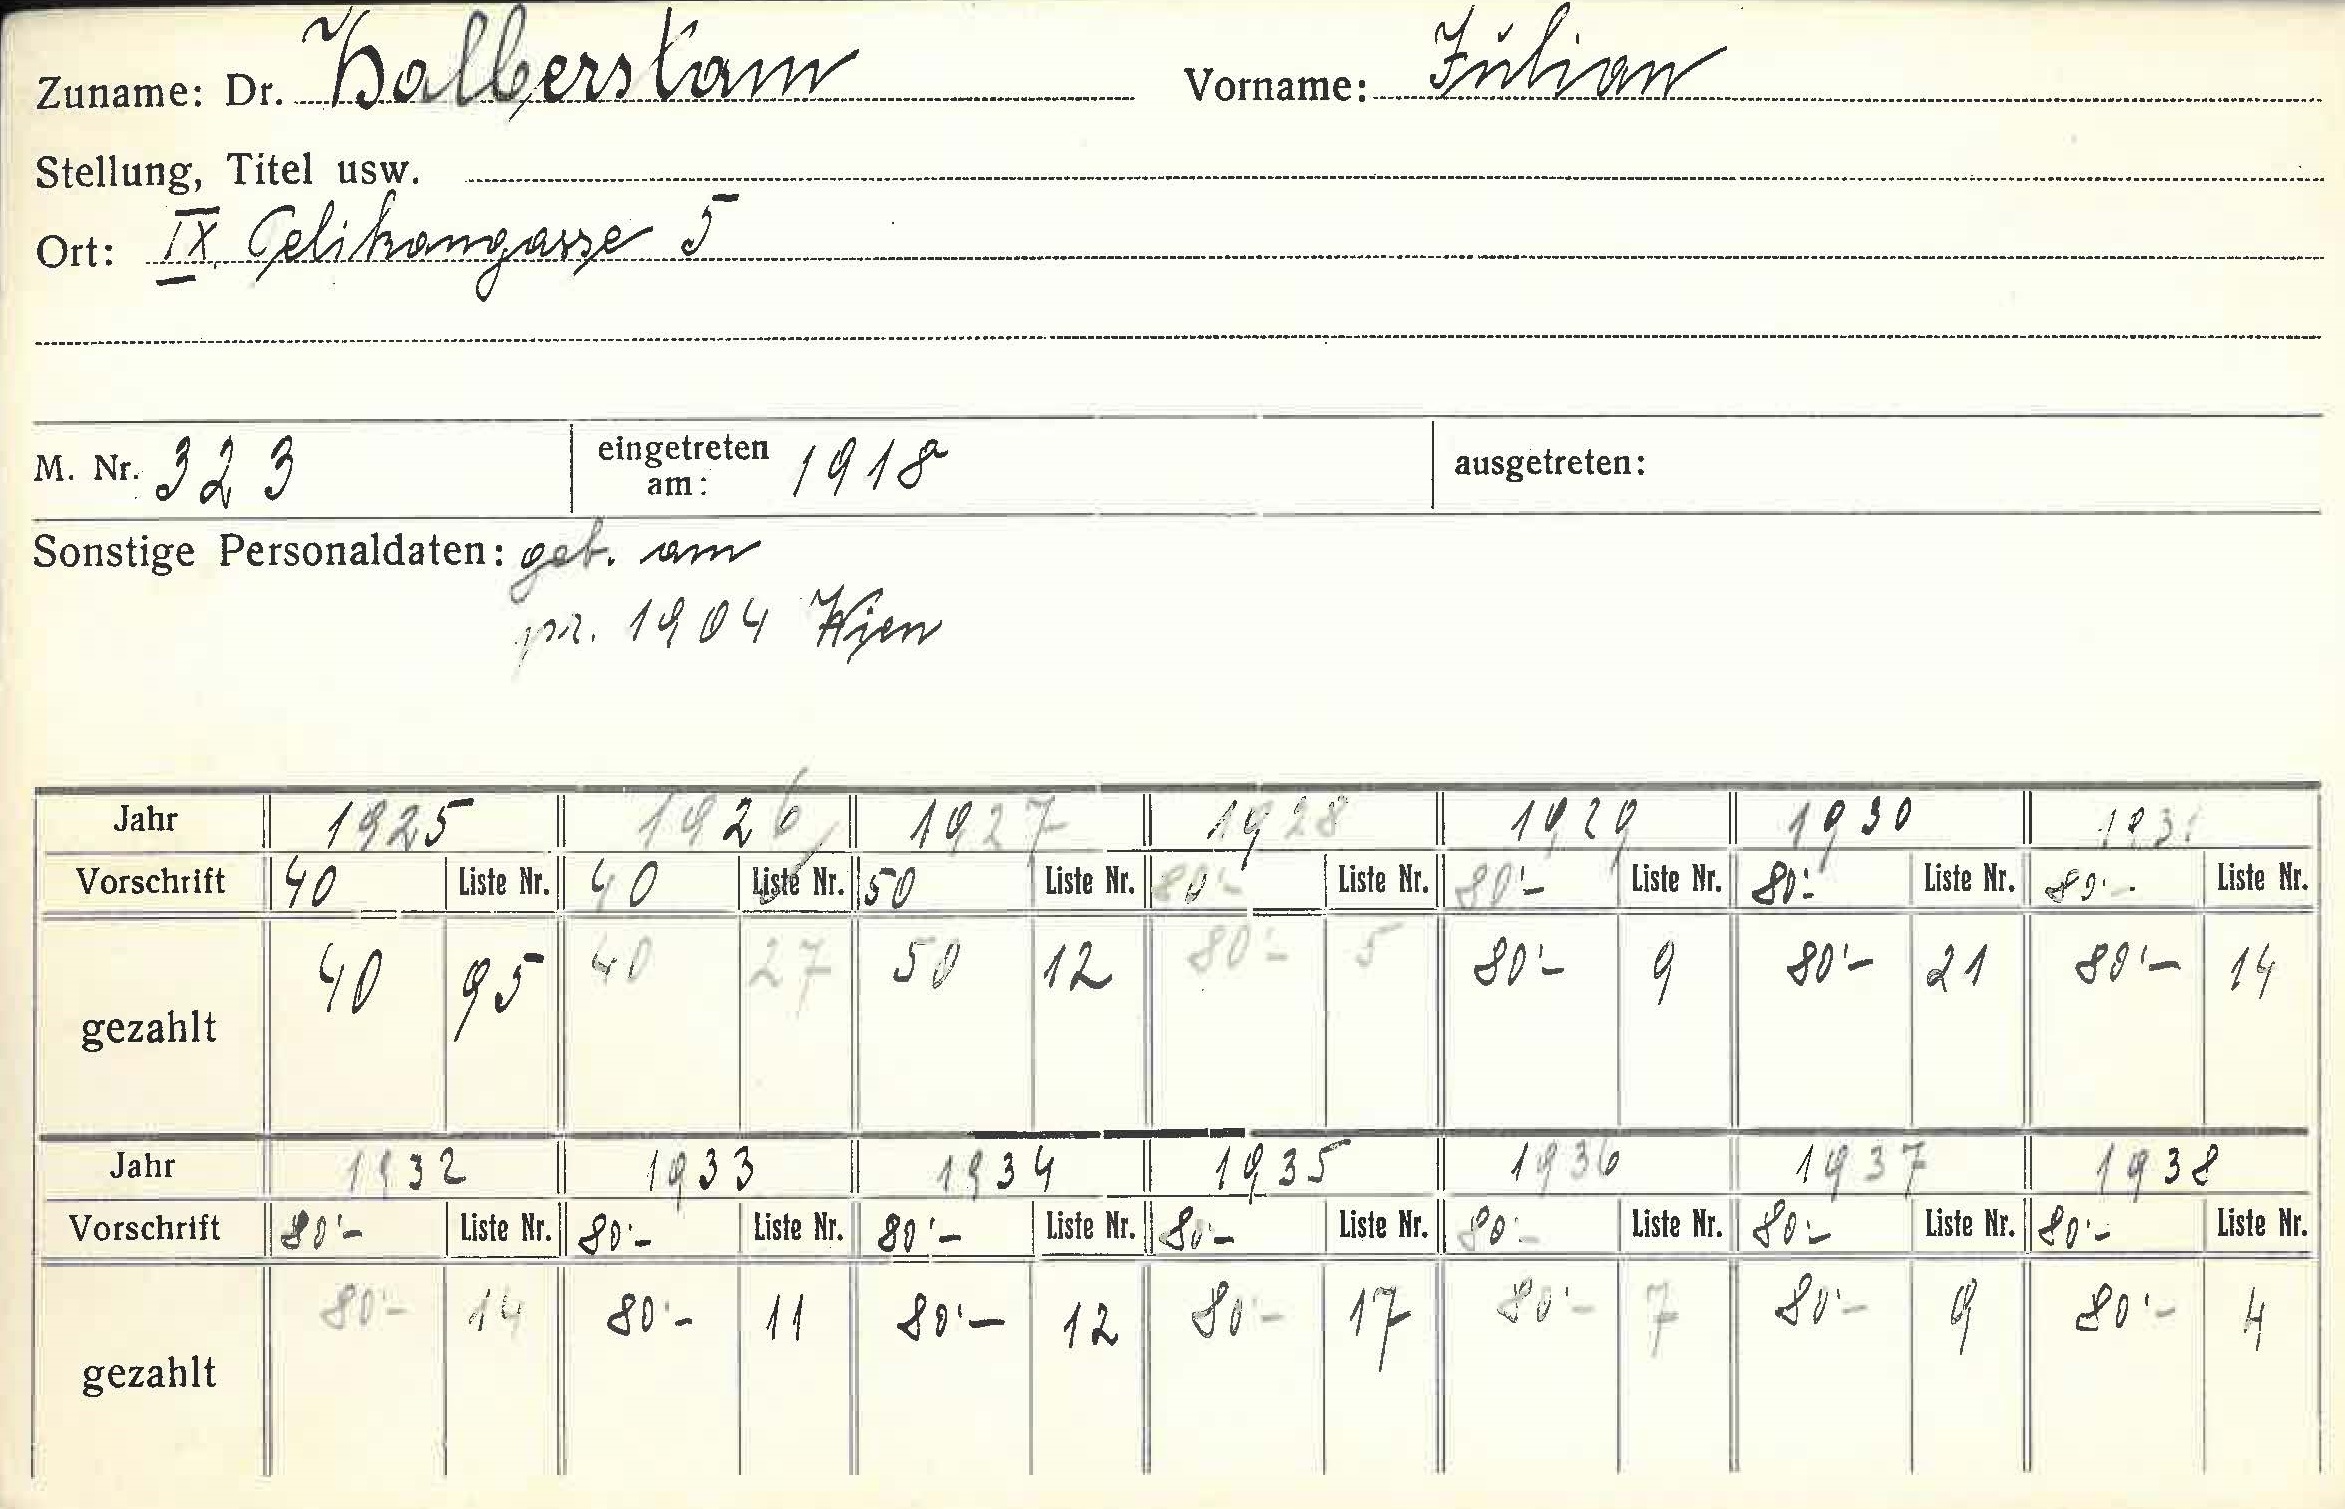 Zuname: Dr. Halberstam Vorname: Julian
Stellung, Titel usw.
Ort: IX. Pelikangasse 5
M. Nr. 323 eingetreten am: 1918 ausgetreten:
Sonstige Personaldaten: geb. am
pr. 1904 Wien
Jahr 1925 1926 1927 1928 1929 1930 1931
Vorschrift 40 Liste Nr. 40 Liste Nr. 50 Liste Nr. 80'- Liste Nr. 80'- Liste Nr. 80'- Liste Nr. 80'- Liste Nr.
gezahlt 40 95 40 27 50 12 80'- 5 80'- 9 80'- 21 80'- 14
Jahr 1932 1933 1934 1935 1936 1937 1938
Vorschrift 80'- Liste Nr. 80'- Liste Nr. 80'- Liste Nr. 80'- Liste Nr. 80'- Liste Nr. 80'- Liste Nr. 80'- Liste Nr.
gezahlt 80'- 14 80'- 11 80'- 12 80'- 17 80'- 7 80'- 9 80'- 4